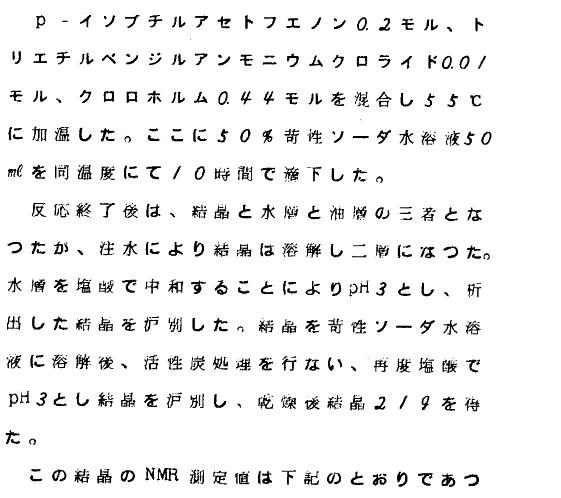 p-イソブチルアセトフエノン0.2モル、ト
リエチルベンジルアンモニウムクロライド0.01
モル、クロロホルム0.44モルを混合し55℃
に加温した。ここに50%苛性ソーダ水溶液50
mlを同温度にて10時間で滴下した。
反応終了後は、結晶と水層と油層の三者とな
つたが、注水により結晶は溶解し二層になつた。
水層を塩酸で中和することによりpH3とし、析
出した結晶を沪別した。結晶を苛性ソーダ水溶
液に溶解後、活性炭処理を行ない、再度塩酸で
pH3とし結晶を沪別し、乾燥後結晶21gを得
た。
この結晶のNMR測定値は下記のとおりであつ